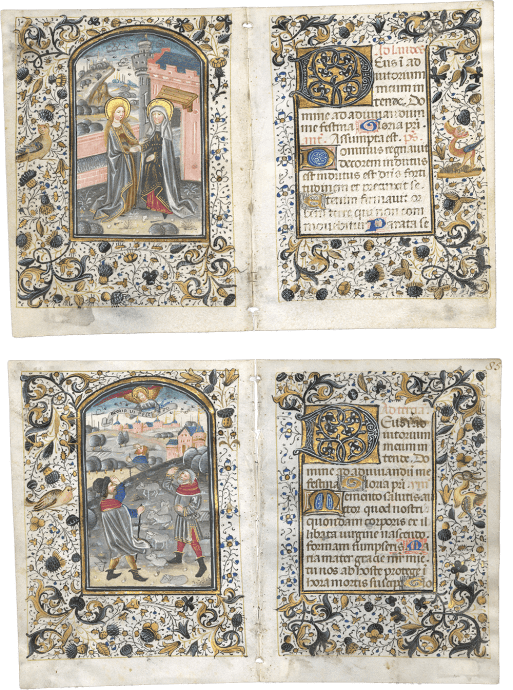 Ad laudes
Eus i ad
iutorium
meum in
tende. Do
mine ad adiuvandum
me festina Gloria pa
tri. Assumpta est. ps
Dominus regnavit
decorem indutus
est indutus est dns forti
tudinem et precinxit se
Etenim firmavit or
bem terre qui non com
movebitur Parata se
Ad
Deus in ad
iutorium
meum in
tende. Do
mine ad adiuvandum me
festina Gloria pri
Memento salutis au
ctor quod nostri
quondam corporis ex il
libata virgine nascendo
formam sumpseris Ma
ria mater gratie mr mie
tu nos ab hoste protege i
hora mortis suscipe Glo